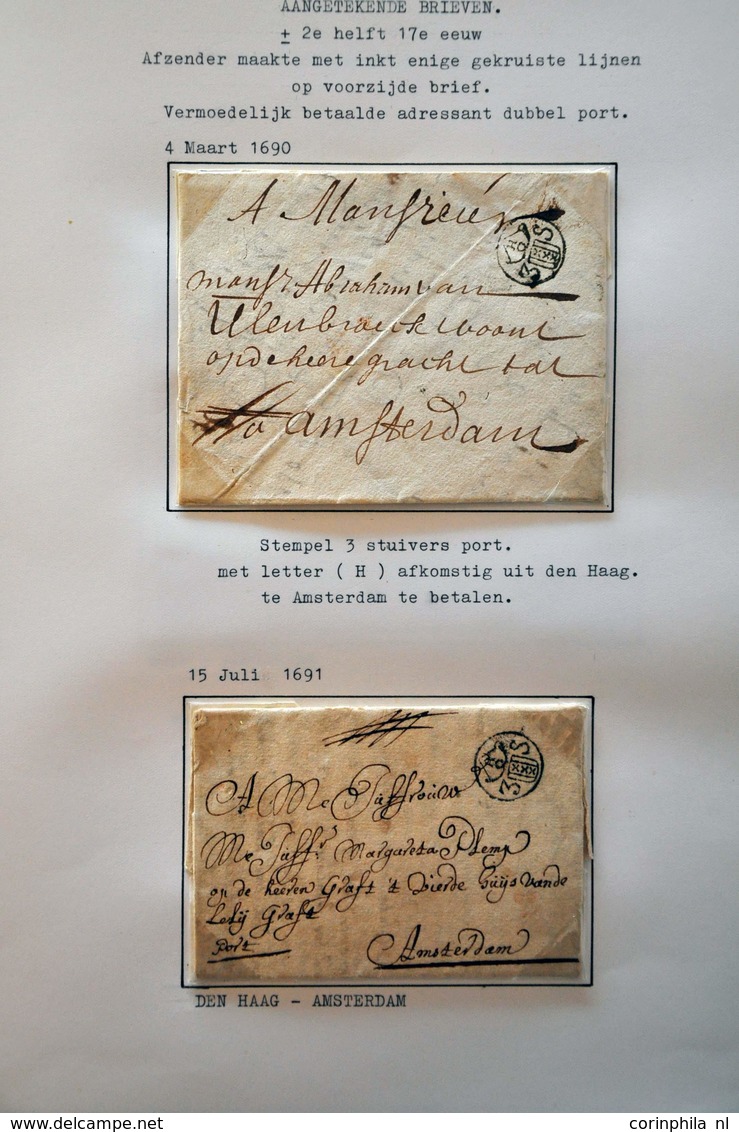 AANGETEKENDE BRIEVEN.
± 2e helft 17e eeuw
Afzender maakte met inkt enige gekruiste lijnen
op voorzijde brief.
Vermoedelijk betaalde adressant dubbel port.
4 Maart 1690
A Monsieur
3 S
xxx
monsr Abraham van
Ulenbroeck woont
op de heere gracht tot
Amsterdam
Stempel 3 stuivers port.
met letter ( H ) afkomstig uit den Haag.
te Amsterdam te betalen.
15 Juli 1691
3 S
xxx
A Me Juffrouw
Me Juffr Margareta Plemp
op de heeren Graft 't vierde huijs vande
Lelij Graft
Port
Amsterdam
DEN HAAG - AMSTERDAM
delcampe.net
corinphila nl